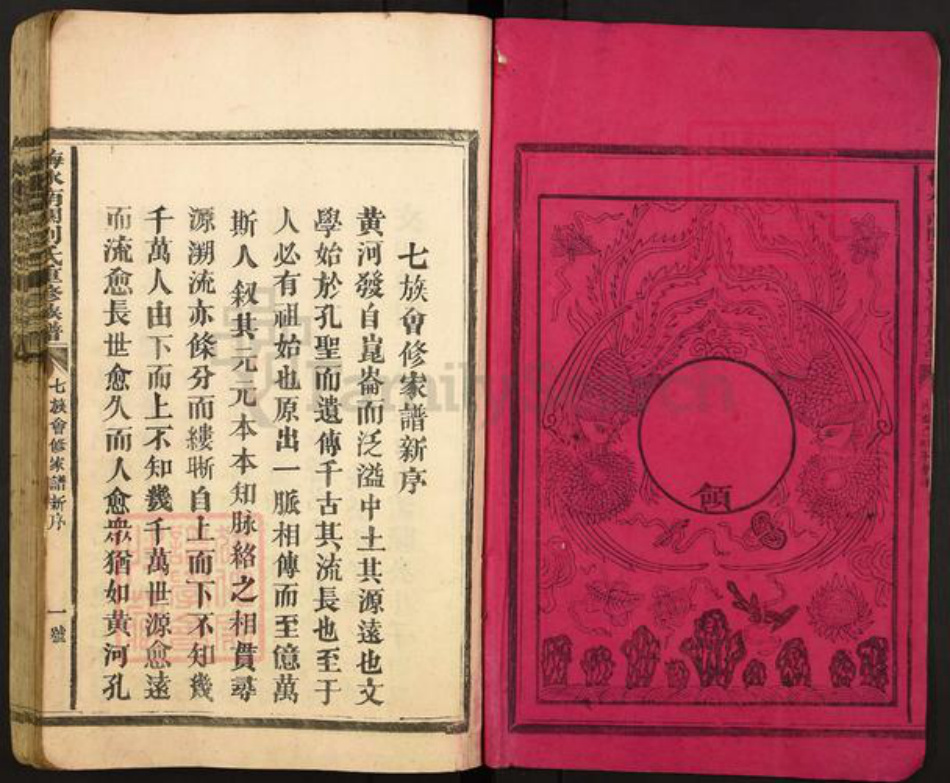 領
七族會修家譜新序
黃河發自崑崙而泛溢中土其源遠也文
學始於孔聖而遺傳千古其流長也至于
人必有祖始也原出一脈相傳而至億萬
斯人叙其元元本本知脉絡之相貫尋
源溯流亦條分而縷晰自上而下不知幾
千萬人由下而上不知幾千萬世源愈遠
而流愈長世愈久而人愈眾猶如黃河孔
劉氏重修族譜
七族會修家譜新序
一號